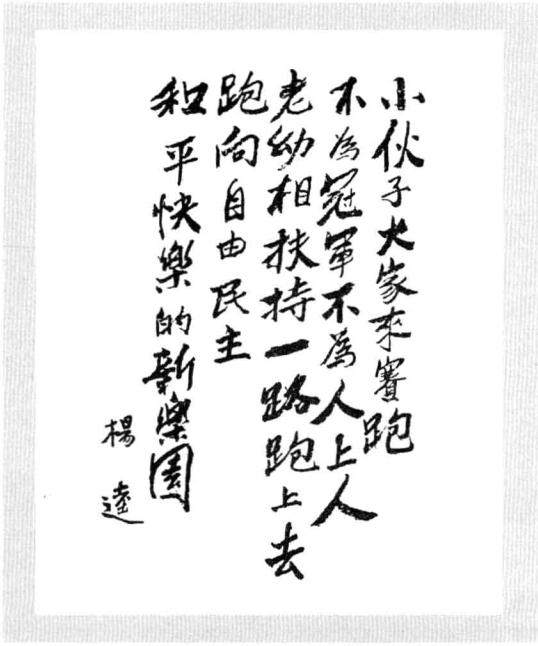 小伙子大家來賽跑
不為冠軍不為人上人
老幼相扶持一路跑上去
跑向自由民主
和平快樂的新樂園
楊逵